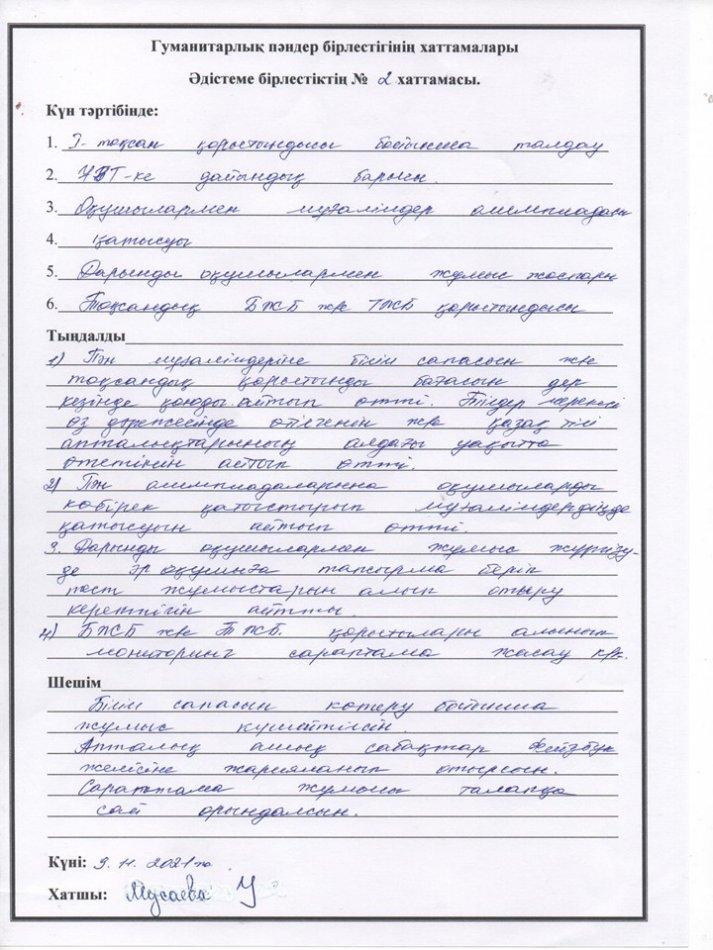 Гуманитарлық пәндер бірлестігінің хаттамалары
Әдістеме бірлестіктің № 2 хаттамасы.
Күн тәртібінде:
1. I- тоқсан қорытындысы бойынша талдау
2. ҰБТ-ке дайындық барысы.
3. Оқушылармен мұғалімдер олимпиадасы
4. қатысуы
5. Дарынды оқушылармен жұмыс жоспары
6. Тоқсандық БЖБ жн ТЖБ қорытындысы
Тыңдалды
1) Пән мұғалімдеріне білім сапасын жн
тоқсандық қорытынды бағасын дер
кезінде қоюды айтып өтті. Тілдер мерекесі
өз дәрежесінде өткенін жн қазақ тілі
апталықтарының алдағы уақытта
өтетінін айтып өтті.
2) Пән олимпиадаларына оқушыларды
көбірек қатыстырып мұғалімдердіңде
қатысуын айтып өтті.
3. Дарынды оқушылармен жұмыс жүргізу-
де әр оқушыға тапсырма беріп
тест жұмыстарын алып отыру
керектігін айтты.
4) БЖБ жн ТЖБ. қорытылары алынып
мониторинг сараптама жасау крк.
Шешім
Білім сапасын көтеру бойынша
жұмыс күшейтілсін.
Апталық ашық сабақтар фейзбук
желісіне жарияланып отырсын.
Сараптама жұмысы талапқа
сай орындалсын.
Күні: 9. 11. 2021ж.
Хатшы: Мусаева У